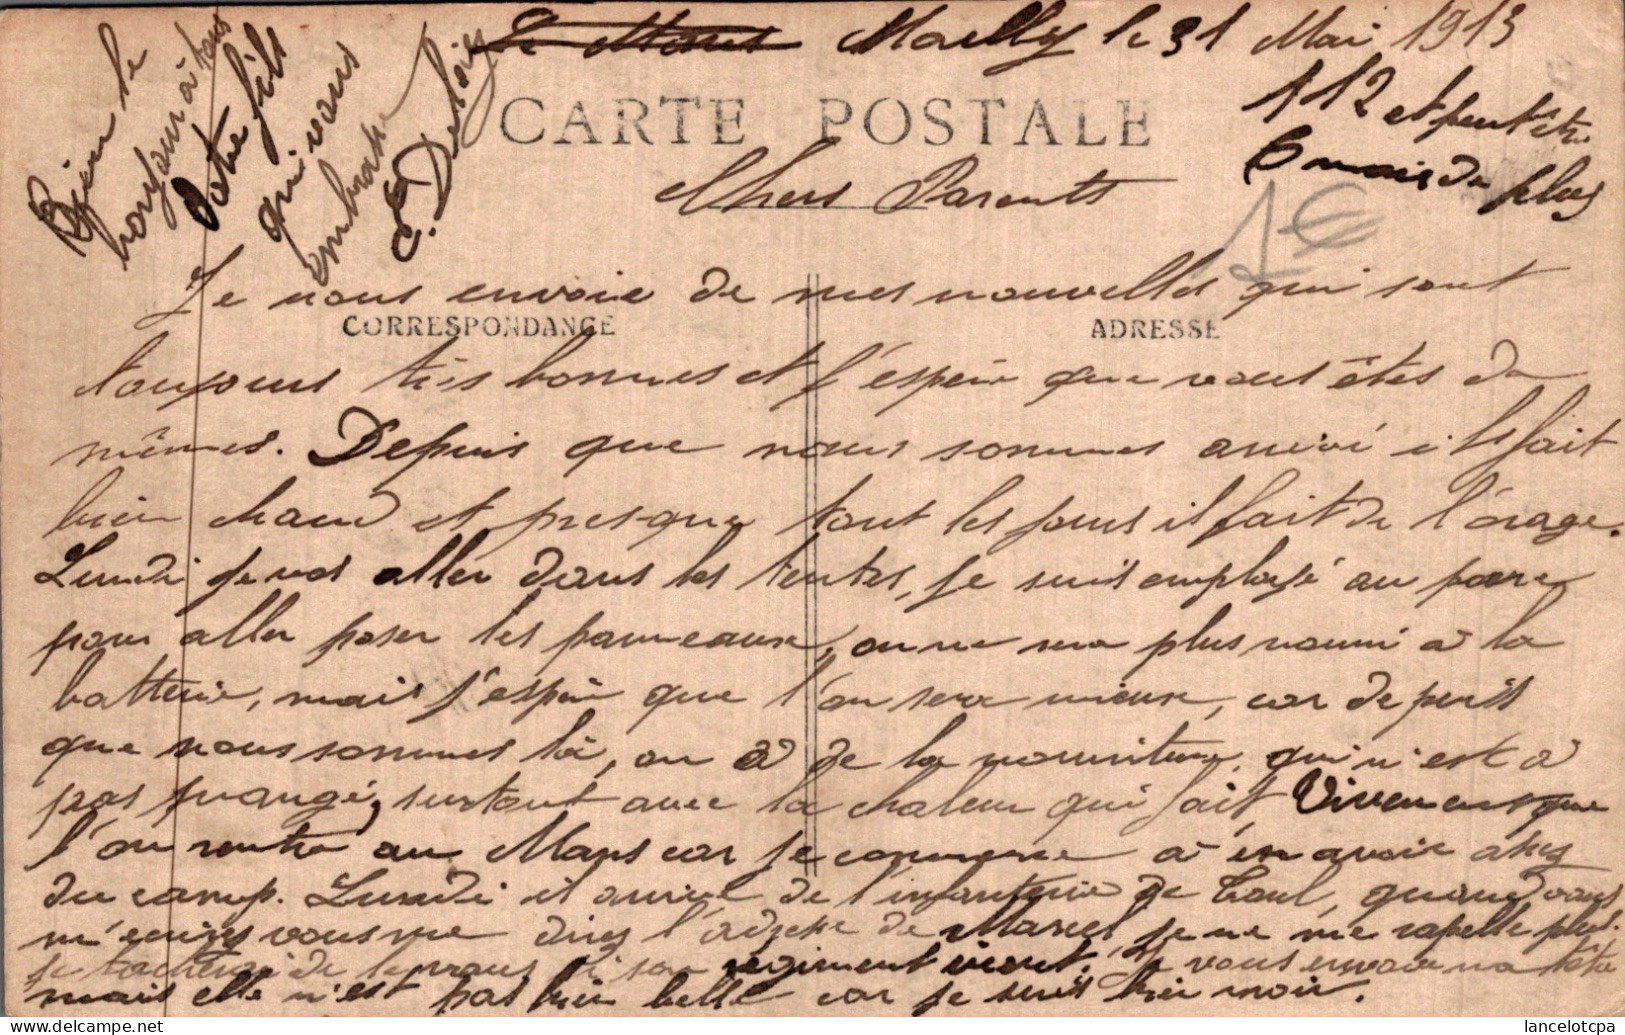 Le Mans Mailly le 31 Mai 1913
CARTE POSTALE
112 et peut être
6 mois de plus
1€
Chers Parents
Je vous envoie de mes nouvelles qui sont
CORRESPONDANCE
ADRESSE
toujours très bonnes et j'espère que vous êtes de
mêmes. Depuis que nous sommes arrivé il fait
bien chaud et presque tout les jours il fait de l'orage.
Lundi je vas aller dans les tentes, je suis employé au parc
pour aller poser les panneaux, on ne sera plus nourri à la
batterie, mais j'espère que l'on sera mieux, car depuis
que nous sommes là, on à de la nourriture qui n'est à
pas mangé, surtout avec la chaleur qui fait, Vivement que
l'on rentre au Mans car je commence à en avoir assez
du camp. Lundi il arrive de l'infanterie de Toul, quand vous
m'écrirez vous me direz l'adresse de Marcel je ne me rapelle plus.
je tacherai de le voir si son régiment vient. Je vous envoie ma tête
mais elle n'est pas bien belle car je suis bien noir.
Bien le
bonjour à tous
Votre fils
qui vous
embrasse
E. Deloiz
lancelotcpa